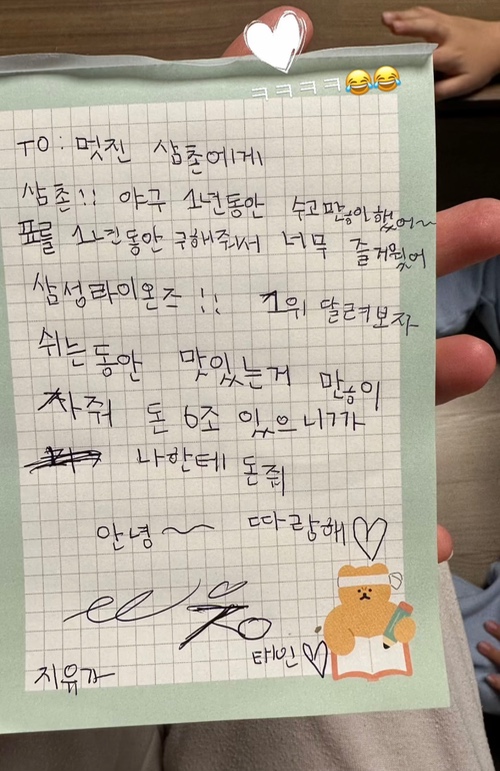 ㅋㅋㅋㅋ😂😂
TO : 멋진 삼촌에게
삼촌!! 야구 1년동안 수고 많이 했어~
표를 1년동안 구해주서 너무 즐거웠어
삼성라이온즈 !! 1위 달려보자
쉬는동안 맛있는거 만히
사줘 돈 6조 있으니까
나한테 돈줘
안녕~~ 따랑해♡
태인♡
지유가